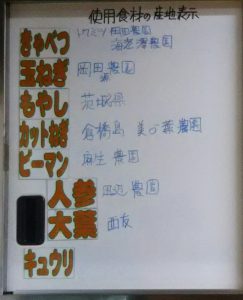 使用食材の産地表示
きゃべつ トクミツ 岡田農園
海老澤農園
玉ねぎ 岡田農園
もやし 茨城県
カットねぎ 倉橋島 農園
ピーマン 麻生農園
人参 田辺農園
大葉 西友
キュウリ